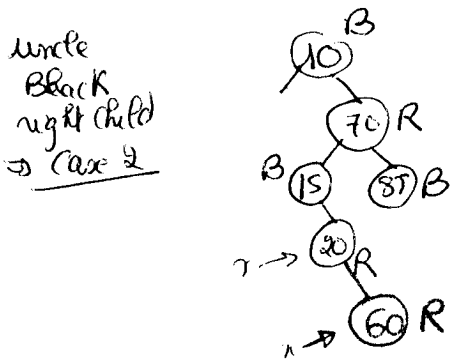 uncle
Black
right child
⇒ Case 2
B
10
70 R
B
15
85 B
20
R
60 R